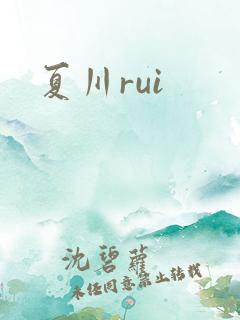 夏川rui
沈碧蘿
未经同意禁止转载